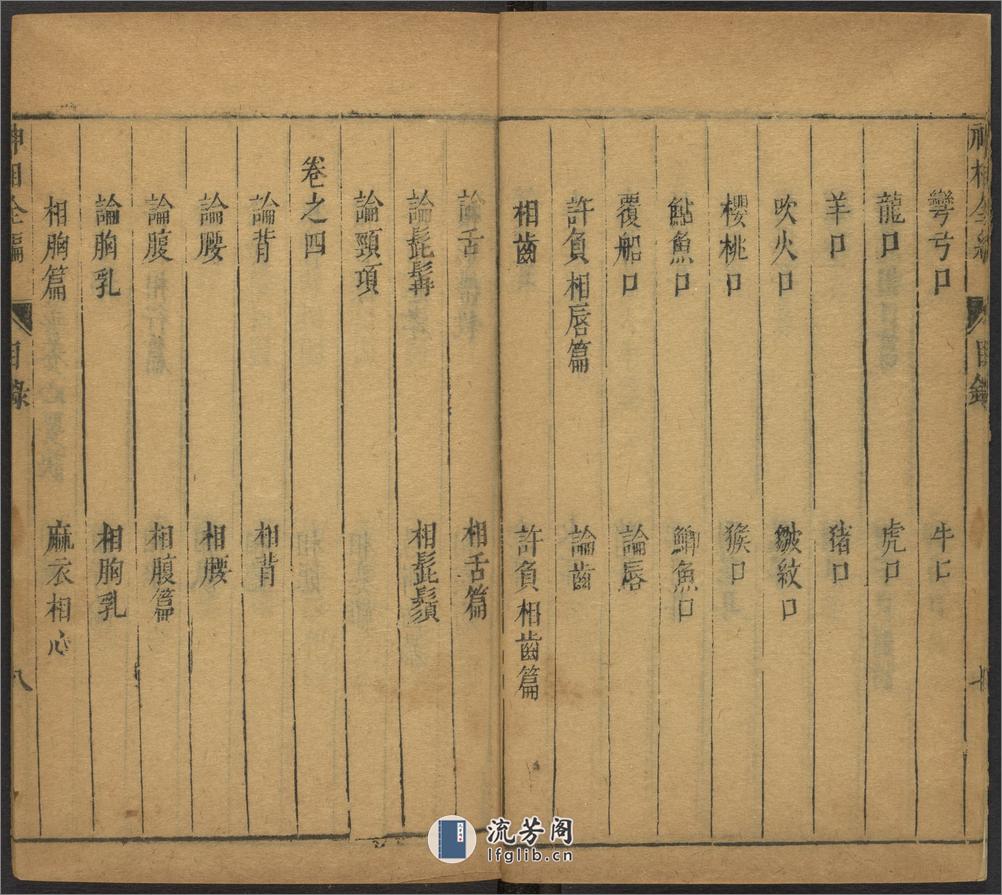 神相全編 目錄 七
彎弓口 牛口
龍口 虎口
羊口 豬口
吹火口 皺紋口
櫻桃口 猴口
鮎魚口 鯽魚口
覆船口 論唇
許負相唇篇 論齒
相齒 許負相齒篇
論舌 相舌篇
論髭髯 相髭鬚
論頸項
卷之四
論背 相背
論腰 相腰
論腹 相腹篇
論胸乳 相胸乳
相胸篇 麻衣相心
神相全編 目錄 八
流芳阁
lfglib.cn